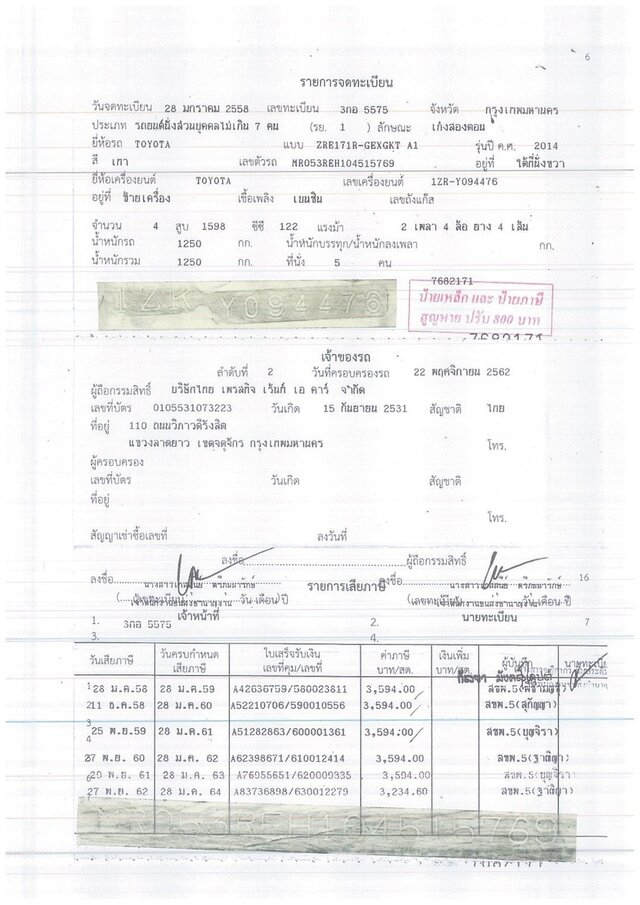 6
รายการจดทะเบียน
วันจดทะเบียน 28 มกราคม 2558 เลขทะเบียน 3กอ 5575 จังหวัด กรุงเทพมหานคร
ประเภท รถยนต์นั่งส่วนบุคคลไม่เกิน 7 คน (รย. 1 ) ลักษณะ เก๋งสองตอน
ยี่ห้อรถ TOYOTA แบบ ZRE171R-GEXGKT A1 รุ่นปี ค.ศ. 2014
สี เทา เลขตัวรถ MR053REH104515769 อยู่ที่ ใต้ที่นั่งขวา
ยี่ห้อเครื่องยนต์ TOYOTA เลขเครื่องยนต์ 1ZR-Y094476
อยู่ที่ ซ้ายเครื่อง เชื้อเพลิง เบนซิน เลขถังแก๊ส
จำนวน 4 สูบ 1598 ซีซี 122 แรงม้า 2 เพลา 4 ล้อ ยาง 4 เส้น
น้ำหนักรถ 1250 กก. น้ำหนักบรรทุก/น้ำหนักลงเพลา กก.
น้ำหนักรวม 1250 กก. ที่นั่ง 5 คน
7682171
1ZR Y094476
ป้ายเหล็ก และ ป้ายภาษี
สูญหาย ปรับ 800 บาท
7682171
เจ้าของรถ
ลำดับที่ 2 วันที่ครอบครองรถ 22 พฤศจิกายน 2562
ผู้ถือกรรมสิทธิ์ บริษัทไทย เพรสทิจ เร้นท์ เอ คาร์ จำกัด
เลขที่บัตร 0105531073223 วันเกิด 15 กันยายน 2531 สัญชาติ ไทย
ที่อยู่ 110 ถนนวิภาวดีรังสิต
แขวงลาดยาว เขตจตุจักร กรุงเทพมหานคร โทร.
ผู้ครอบครอง
เลขที่บัตร วันเกิด สัญชาติ
ที่อยู่
โทร.
สัญญาเช่าซื้อเลขที่ ลงวันที่
ลงชื่อ ผู้ถือกรรมสิทธิ์
ลงชื่อ รายการเสียภาษี ลงชื่อ 16
(เลขทะเบียน วัน เดือน ปี (เลขทะเบียน วัน เดือน ปี
1. 3กอ 5575 เจ้าหน้าที่ 2. นายทะเบียน 7
3. 4.
วันเสียภาษี วันครบกำหนดเสียภาษี ใบเสร็จรับเงิน เลขที่คุม/เลขที่ ค่าภาษี บาท/สต. เงินเพิ่ม บาท/สต. ผู้บันทึก นายทะเบียน
1 28 ม.ค.58 28 ม.ค.59 A42636759/580023811 3,594.00 สขพ.5
2 11 ธ.ค.58 28 ม.ค.60 A52210706/590010556 3,594.00 สขพ.5(สุกัญญา)
3 25 พ.ย.59 28 ม.ค.61 A51282863/600001361 3,594.00 สขพ.5(บุญจิรา)
4
27 พ.ย. 60 28 ม.ค. 62 A62398671/610012414 3,594.00 สขพ.5(ฐาณิญา)
20 พ.ย. 61 28 ม.ค. 63 A76055651/620009335 3,594.00 สขพ.5(บุญจิรา)
27 พ.ย. 62 28 ม.ค. 64 A83736898/630012279 3,234.60 สขพ.5(ฐาณิญา)
053REH104515769